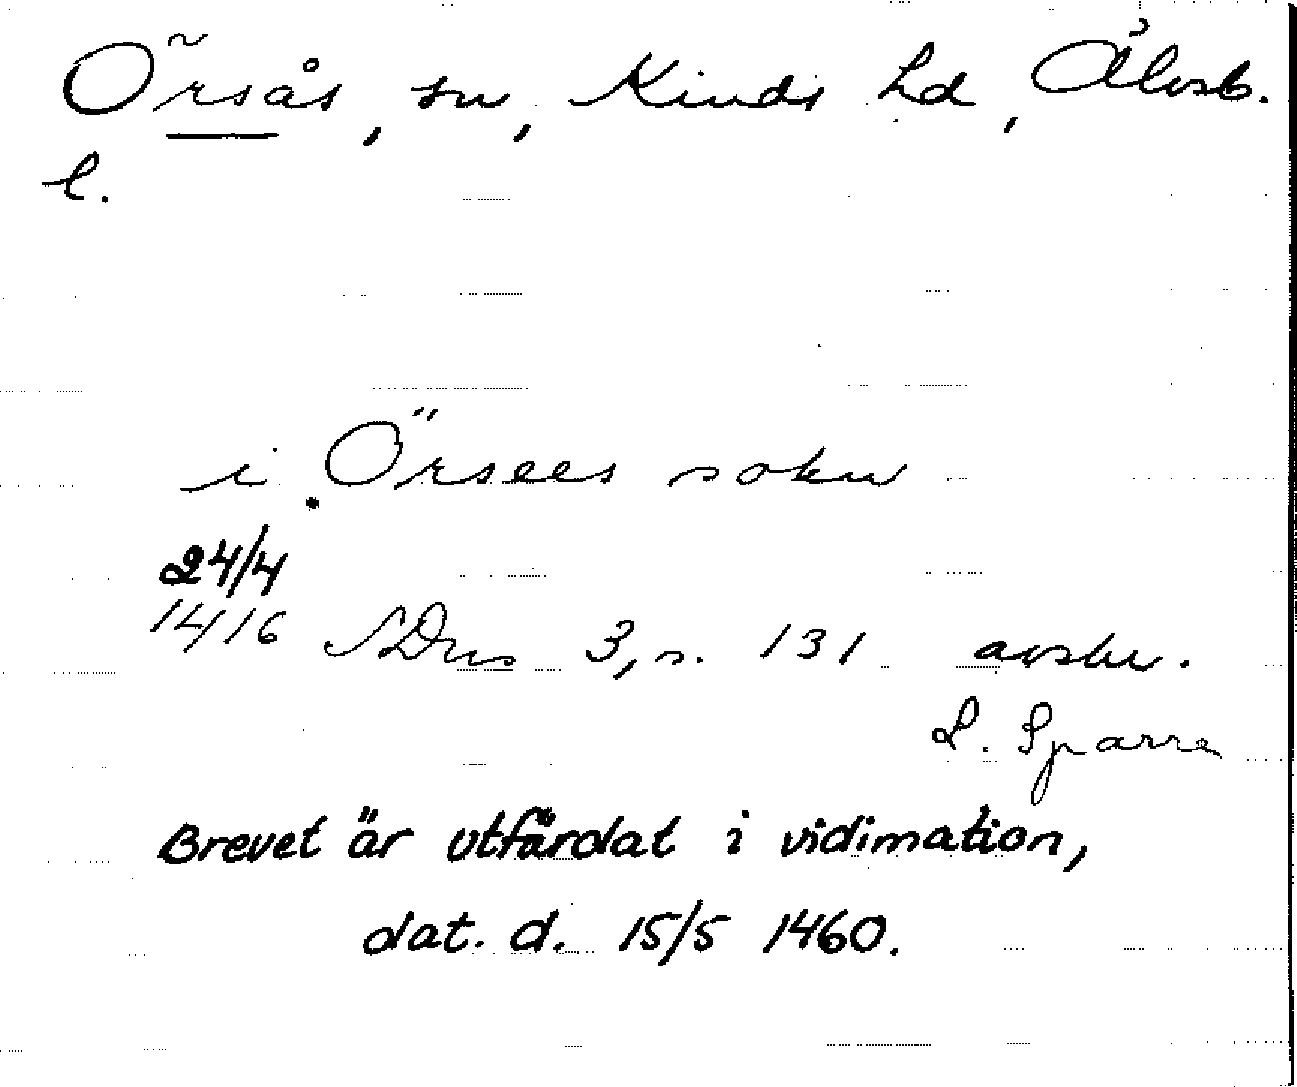 Örsås, sn, Kinds hd, Älvsb.
l.
i Örsees sokn
24/4
1416 SDns 3, s. 131 avskr.
L. Sparre
Brevet är utfärdat i vidimation,
dat. d. 15/5 1460.